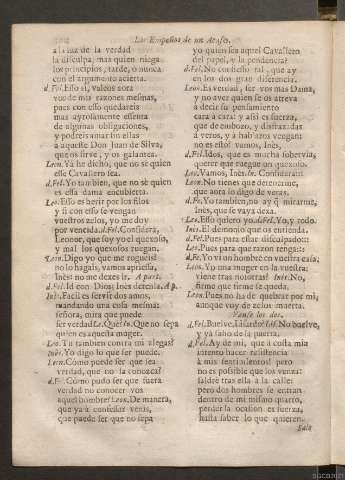 Los Empeños de un Acaso.
a la luz de la verdad
la disculpa, mas quien niega
los principios, tarde, o nunca
con el argumento acierta.
d.Fel. Esso si, valeos aora
vos de mis razones mesmas,
pues con esso quedareis
mas ayrosamente essenta
de algunas obligaciones,
y podreis amar sin ellas
a aqueste Don Juan de Silva,
que os sirve, y os galantea.
Leon. Ya he dicho, que no sè quien
esse Cavallero sea.
d.Fel. Yo tambien, que no sè quien
es essa dama encubierta.
Leo. Esso es herir por los filos
y si con esso se vengan
vuestros zelos, yo me doy
por vencida. d.Fel. Considera,
Leonor, que soy yo el quexoso,
y mal los quexosos ruegan.
Leon. Digo yo que me rogueis?
no lo hagais, vamos apriessa,
Inès: no me dexes ir. A parte.
d.Fel. Id con Dios: Inès detenla. Ap.
Inès. Facil es servir dos amos,
mandando una cosa mesma:
señora, mira que puede
ser verdad. Leo. Què? In. Que no sepa
quien es aquesta muger.
Leo. Tu tambien contra mi alegas?
Inès. Yo digo lo que ser puede.
Leon. Còmo puede ser que sea
verdad, que no la conozca?
d.Fel. Còmo pudo ser que fuera
verdad no conocer vos
aquel hombre? Leon. De manera,
que ya à confessar venis,
que puede ser que no sepa
yo quien sea aquel Cavallero
del papel, y la pendencia?
d.Fel. No confiesso tal, que ay
en los dos gran diferencia.
Leon. Es verdad, ser vos mas Dama,
y no aver quien se os atreva
à decir su pensamiento
cara à cara; y assi es fuerça,
que de embozo, y disfrazadas
à veros, y à hablaros vengan:
no es esto? vamos, Inès.
d.Fel. Idos, que es mucha sobervia,
querer que ruegue un quexoso.
Leo. Vamos, Inès. In. Considera::
Leon. No tienes que detenerme,
que aora lo digo de veras.
d.Fel. Yo tambien, no ay que mirarme,
Inès, que se vaya dexa.
Leo. Esso quiero yo. d.Fel. Yo, y todo.
Inès. El demonio que os entienda.
d.Fel. Pues para estar disculpado:::
Leo. Pues para que razon tenga:::
d.Fe. Yo vi un hombre en vuestra casa.
Leon. Yo una muger en la vuestra:
viene tras nosotras? Inès. No,
firme que firme se queda.
Leon. Pues no ha de quebrar por mi,
aunque voy de zelos muerta.
Vanse los dos.
d.Fel. Buelve, Lisardo? Lis. No buelve,
y ya salió de la puerta.
d.Fel. Ay de mi, que à costa mia
intento hacer resistencia
à mis sentimientos! pero
no es posible que los venza:
saldrè tras ella à la calle;
pero dos hombres se entran
dentro de mi mismo quarto,
perder la ocasion es fuerza,
hasta saber lo que quieren.
Sale